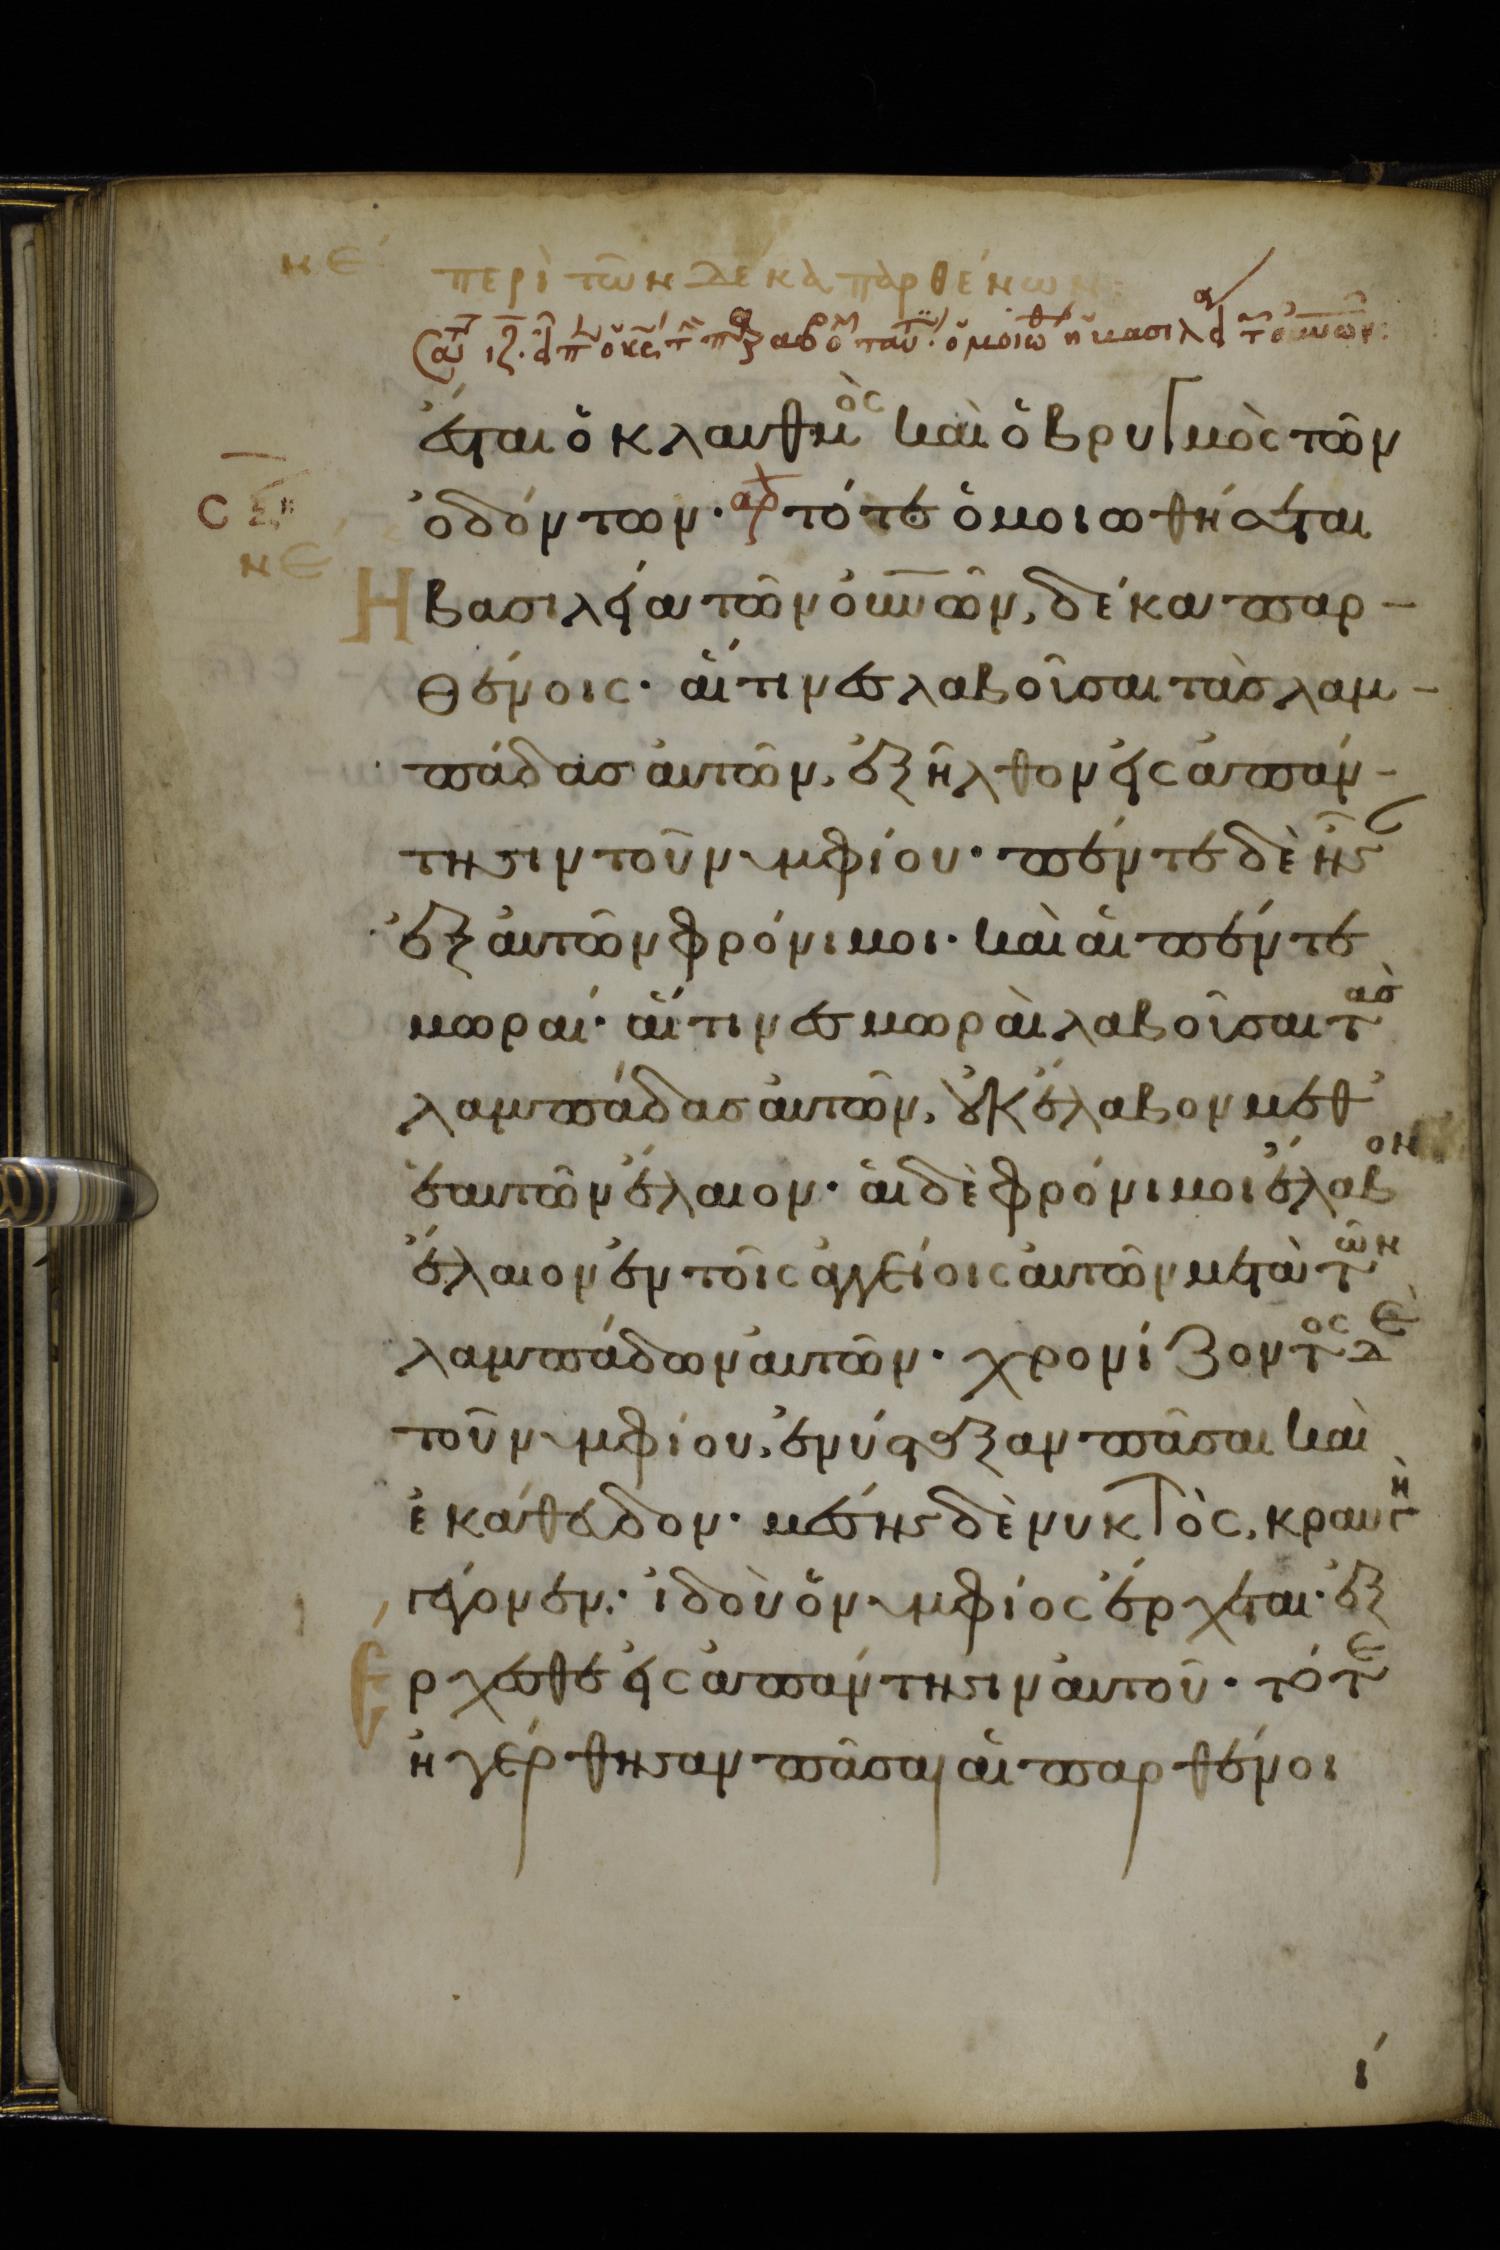 κε
περὶ τῶν δέκα παρθένων:
ἔσται ὁ κλαυθμὸς καὶ ὁ βρυγμὸς τῶν
ὀδόντων· τότε ὁμοιωθήσεται
Η βασιλεία τῶν οὐνῶν, δέκα παρ-
θένοις· αἵτινες λαβοῦσαι τὰς λαμ-
πάδας αὐτῶν, ἐξῆλθον εἰς ἀπάν-
τησιν τοῦ νυμφίου· πέντε δὲ ἦσ
ἐξ αὐτῶν φρόνιμοι· καὶ αἱ πέντε
μωραί· αἵτινες μωραὶ λαβοῦσαι τὰς
λαμπάδας αὐτῶν, οὐκ ἔλαβον μεθ'
ἑαυτῶν ἔλαιον· αἱ δὲ φρόνιμοι ἔλαβον
ἔλαιον ἐν τοῖς ἀγγείοις αὐτῶν μετὰ τῶν
λαμπάδων αὐτῶν· χρονίζοντος δὲ
τοῦ νυμφίου, ἐνύσταξαν πᾶσαι καὶ
ἐκάθευδον· μέσης δὲ νυκτὸς, κραυγὴ
γέγονεν· ἰδοὺ ὁ νυμφίος ἔρχεται· ἐξ
Ερχεσθε εἰς ἀπάντησιν αὐτοῦ· τότε
ἠγέρθησαν πᾶσαι αἱ παρθένοι
ι